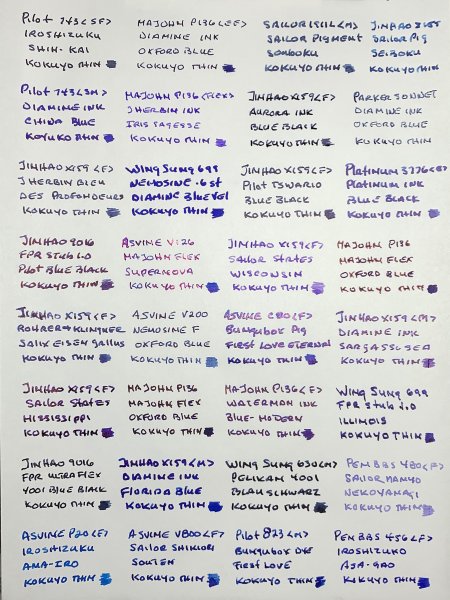 Pilot 743 <SF>
IROSHIZUKU
SHIN-KAI
KOKUYO THIN
MAJOHN P136 <EF>
DIAMINE INK
OXFORD BLUE
KOKUYO THIN
SAILOR 1911L <M>
SAILOR PIGMENT
SOUBOKU
KOKUYO THIN
JINHAO
SAILOR PIG
SEIBOKU
KOKUYO THIN
Pilot 743 <SM>
DIAMINE INK
CHINA BLUE
KOYUKO THIN
MAJOHN P136 <FLEX>
J HERBIN INK
IRIS SAGESSE
KOKUYO THIN
JINHAO X159 <F>
AURORA INK
BLUE BLACK
KOKUYO THIN
PARKER SONNET
DIAMINE INK
OXFORD BLUE
KOKUYO THIN
JINHAO X159 <F>
J HERBIN BLEU
DES PROFONDEURS
KOKUYO THIN
WING SUNG 698
NEMOSINE .6 ST
DIAMINE BLUE VEL
KOKUYO THIN
JINHAO X159 <F>
PILOT TSWARIO
BLUE BLACK
KOKUYO THIN
PLATINUM 3776 <F>
PLATINUM INK
BLUE BLACK
KOKUYO THIN
JINHAO 9016
FPR STUB 1.0
PILOT BLUE BLACK
KOKUYO THIN
ASVINE V126
MAJOHN FLEX
SUPERNOVA
KOKUYO THIN
JINHAO X159 <F>
SAILOR STATES
WISCONSIN
KOKUYO THIN
MAJOHN P136
MAJOHN FLEX
OXFORD BLUE
KOKUYO THIN
JINHAO X159 <F>
ROHRER & KLINGNER
SALIX EISEN GALLUS
KOKUYO THIN
ASVINE V200
NEMOSINE F
OXFORD BLUE
KOKUYO THIN
ASVINE C80 <F>
BUNGUBOX PIG
FIRST LOVE ETERNAL
KOKUYO THIN
JINHAO X159 <M>
DIAMINE INK
SARGASSO SEA
KOKUYO THIN
JINHAO X159 <F>
SAILOR STATES
MISSISSIPPI
KOKUYO THIN
MAJOHN P136
MAJOHN FLEX
OXFORD BLUE
KOKUYO THIN
MAJOHN P136 <F>
WATERMAN INK
BLUE-MODERN
KOKUYO THIN
WING SUNG 699
FPR STUB 1.0
ILLINOIS
KOKUYO THIN
JINHAO 9016
FPR ULTRAFLEX
4001 BLUE BLACK
KOKUYO THIN
JINHAO X159 <M>
DIAMINE INK
FLORIDA BLUE
KOKUYO THIN
WING SUNG 630 <M>
PELIKAN 4001
BLAU SCHWARZ
KOKUYO THIN
PENBBS 480 <F>
SAILOR MANYO
NEKOYANAGI
KOKUYO THIN
ASVINE P20 <F>
IROSHIZUKU
AMA-IRO
KOKUYO THIN
ASVINE V800 <F>
SAILOR SHIKIORI
SOUTEN
KOKUYO THIN
PILOT 823 <M>
BUNGUBOX DYE
FIRST LOVE
KOKUYO THIN
PENBBS 456 <F>
IROSHIZUKU
ASA-GAO
KOKUYO THIN